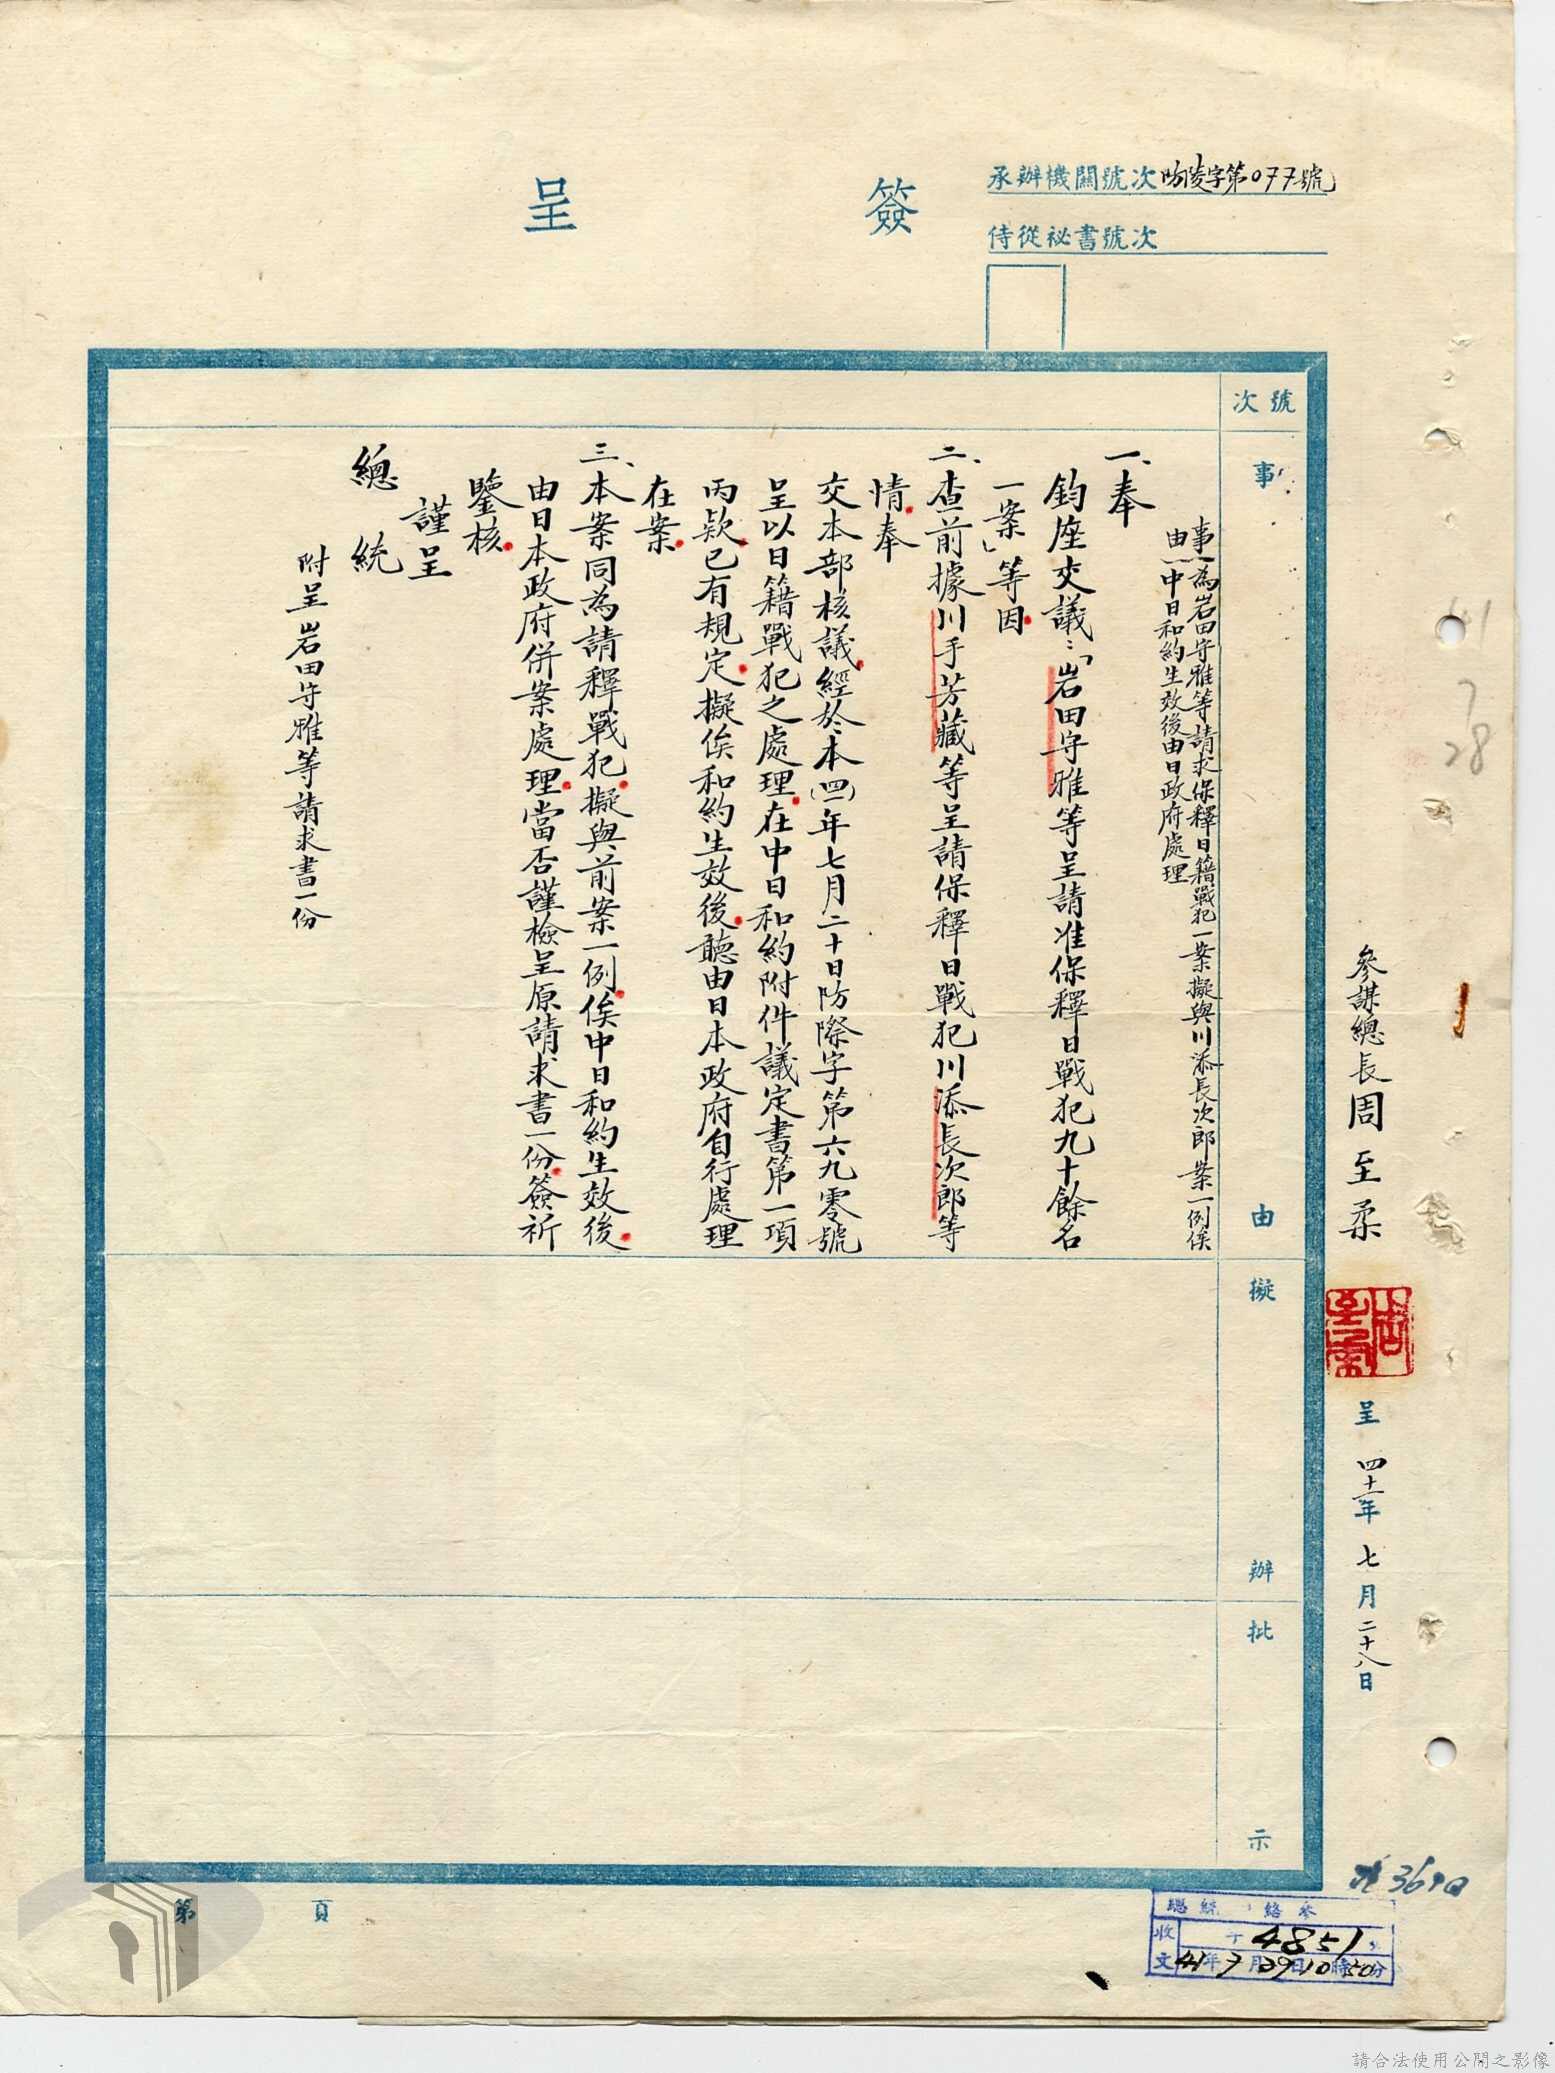 簽呈
承辦機關號次防陵字第077號
侍從祕書號次
參謀總長周至柔
呈 四十一年七月二十八日
41
7
28
號次
事由
擬辦
批示
事由 為岩田守雅等請求保釋日籍戰犯一案擬與川添長次郎案一例俟
中日和約生效後由日政府處理
一、奉
鈞座交議：「岩田守雅等呈請准保釋日戰犯九十餘名
一案」等因
二、查前據川手芳藏等呈請保釋日戰犯川添長次郎等
情奉
交本部核議經於本(四一)年七月二十日防際字第六九零號
呈以日籍戰犯之處理在中日和約附件議定書第一項
丙款已有規定擬俟和約生效後聽由日本政府自行處理
在案
三、本案同為請釋戰犯擬與前案一例俟中日和約生效後
由日本政府併案處理當否謹檢呈原請求書一份簽祈
鑒核
謹呈
總統
附呈岩田守雅等請求書一份
第 頁
收文 字4851
41年7月29日10時50分
請合法使用公開之影像